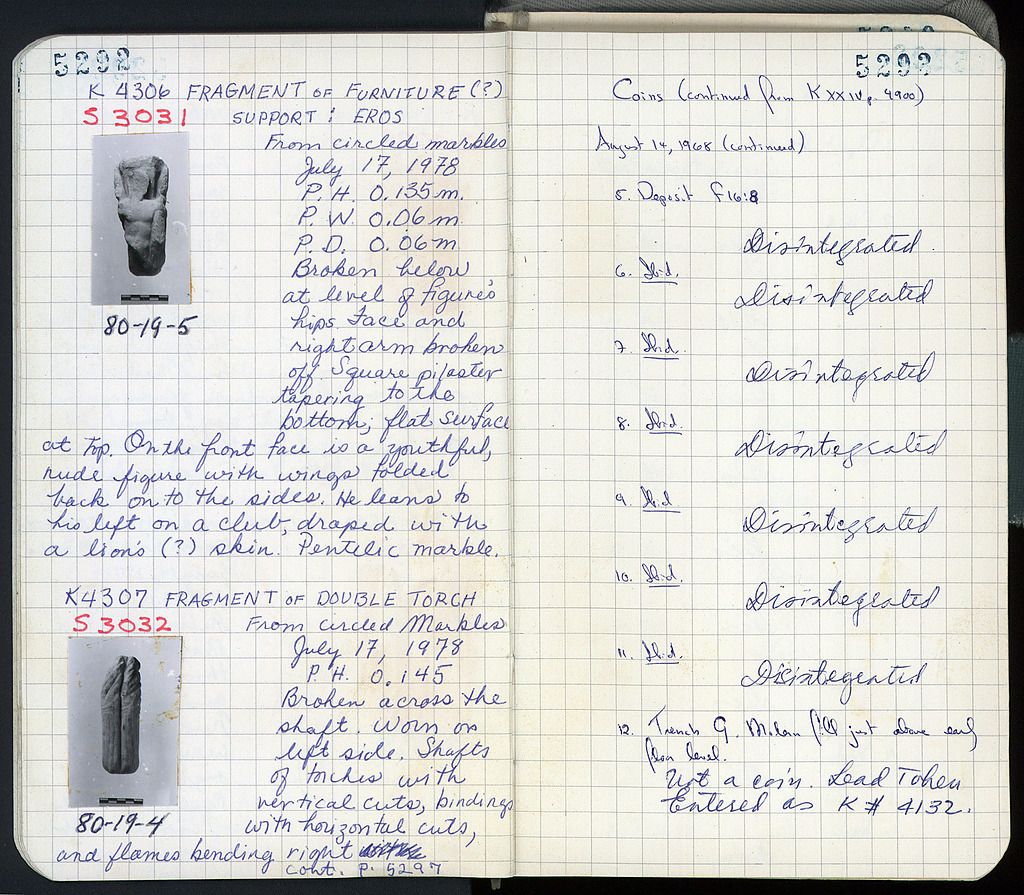 5292
K 4306 FRAGMENT OF FURNITURE (?)
S 3031 SUPPORT : EROS
From circled marbles
July 17, 1978
P. H. 0.135 m.
P. W. 0.06 m.
P. D. 0.06 m
Broken below
at level of figure's
hips. Face and
right arm broken
off. Square pilaster
tapering to the
bottom; flat surface
at top. On the front face is a youthful,
nude figure with wings folded
back on to the sides. He leans to
his left on a club, draped with
a lion's (?) skin. Pentelic marble.
80-19-5
K4307 FRAGMENT OF DOUBLE TORCH
S 3032 From circled Marbles
July 17, 1978
P. H. 0.145
Broken across the
shaft. Worn on
left side. Shafts
of torches with
vertical cuts, bindings
with horizontal cuts,
and flames bending right
cont. P. 5297
80-19-4
5293
Coins (continued from K XXIV p. 4900)
August 14, 1968 (continued)
5. Deposit F 16:8
Disintegrated
6. Ibid.
Disintegrated
7. Ibid.
Disintegrated
8. Ibid.
Disintegrated
9. Ibid.
Disintegrated
10. Ibid.
Disintegrated
11. Ibid.
Disintegrated
12. Trench G. Modern fill just above early
floor level.
Not a coin. Lead Token
Entered as K # 4132.